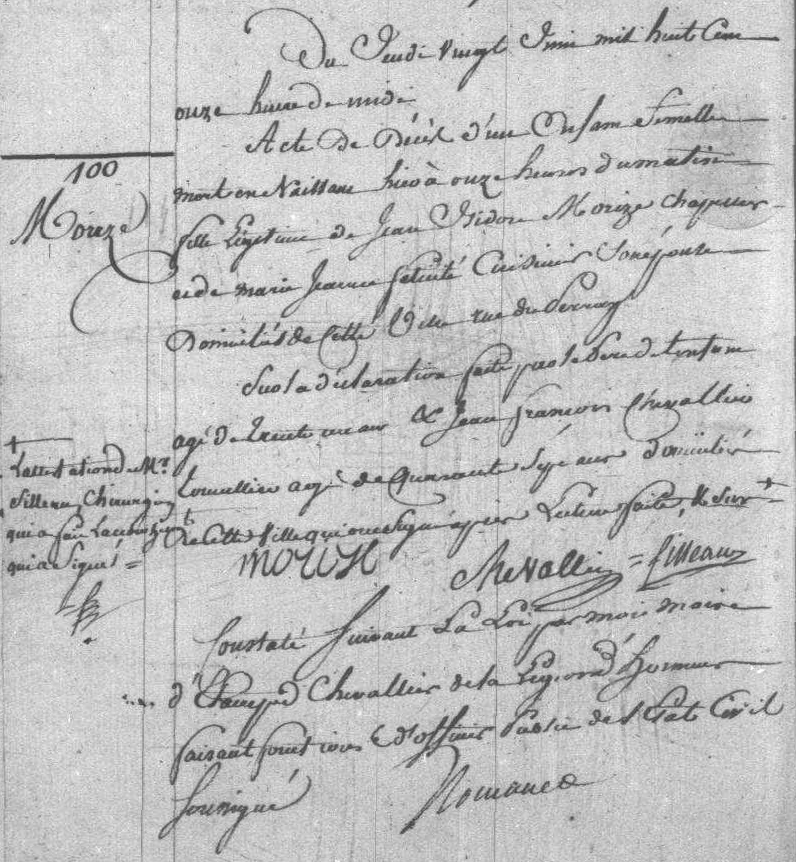 Du Jeudi vingt Juin mil huit Cens
ouze heure de midi
Acte De Décès d'un Enfant femelle
100
mort en Naissant hier à ouze heures du matin
Morizé
fille Légitime de Jean Isidore Morize Chapelier
et de marie Jeanne felicité Cuisinier Son épouse
Domiciliés de Cette Ville rue du Perray
Sur la déclaration faite par le Pere de l'enfant
agé de trente un ans & Jean françois Chevallier
Tonnellier agé de Quarante Sept ans domicilié
de Cette Ville qui ont Signé après Lecture faite, & Sur +
+
L'attestation de Mr.
filleau, Chirurgien
qui a fait L'accouchement
qui a Signé =
MORISE Chevallier = filleau
Constaté Suivant La Loi par moi maire
d'Etampes Chevallier de la Légion d'Honneur
faisant fonctions d'officier Public de l'Etat Civil
Soussigné
Romanet